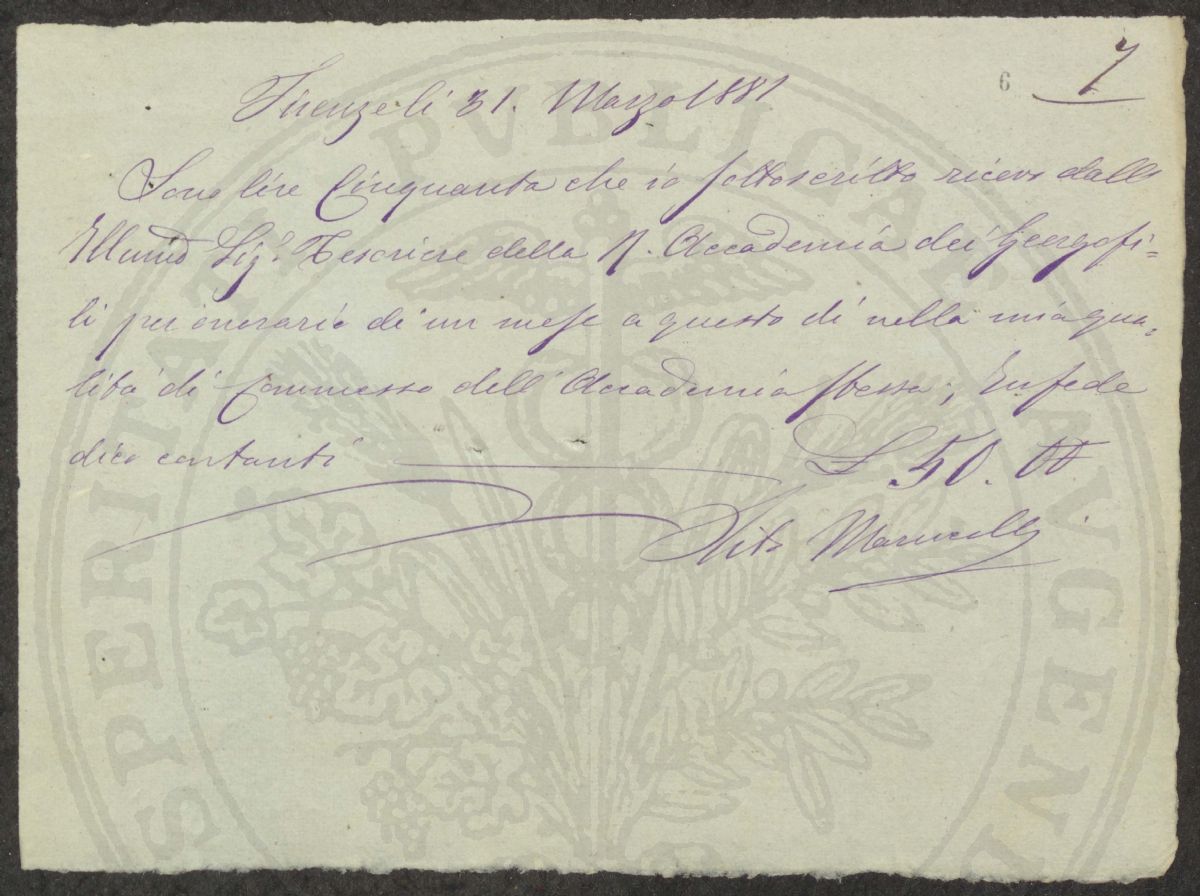 6 7
Firenze li 31. Marzo 1881
Sono lire Cinquanta che io sottoscritto ricevo dallo
Sig.r Tesoriere della R. Accademia dei Georgofi-
li per onorario di un mese a questo dì nella mia qua-
lità di Commesso dell'Accademia stessa; In fede
dico contanti L. 50. 00
Vito Marucelli
PROSPERITATI PVBLICAE AVGENDAE